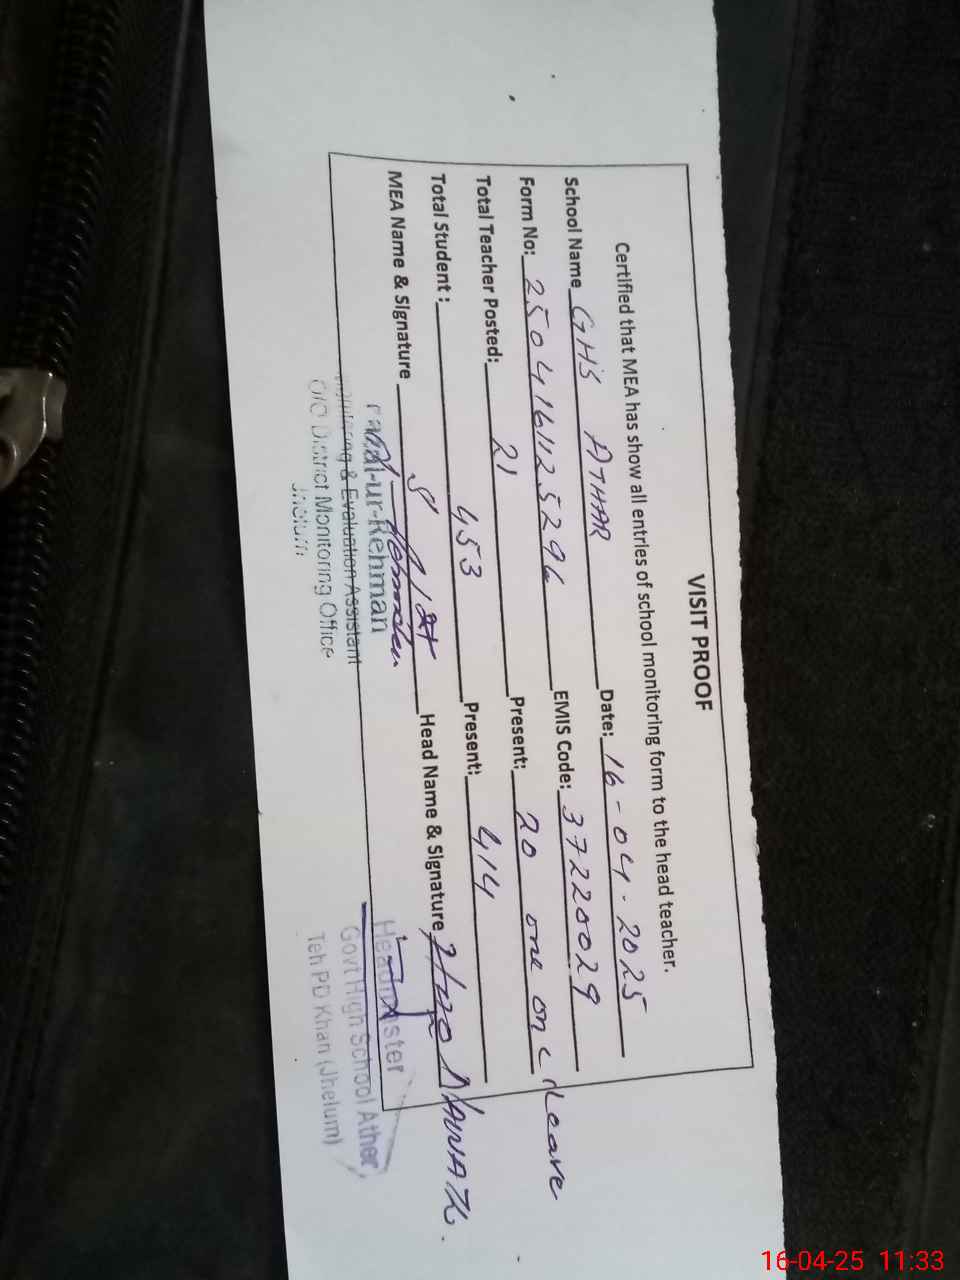 VISIT PROOF
Certified that MEA has show all entries of school monitoring form to the head teacher.
School Name GHS ATHAR Date: 16-04-2025
Form No: 2504161125296 EMIS Code: 37220029
Total Teacher Posted: 21 Present: 20 one on c/Leave
Total Student : 453 Present: 414
MEA Name & Signature Head Name & Signature NAWAZ
-ur-Rehman
Monitoring & Evaluation Assistant
O/O District Monitoring Office
Jhelum
Headmaster
Govt High School Ather,
Teh PD Khan (Jhelum)
16-04-25 11:33